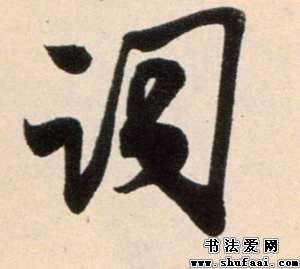 词
书法爱网
www.shufaai.com